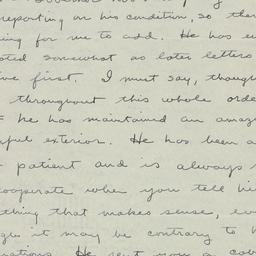 reporting on his condition, so ther
ing for me to add. He has e
ated somewhat as later letters
ive first. I must say, though
throughout this whole orde
he has maintained an amaz
ful exterior. He has been a
patient and is always
cooperate when you tell hi
thing that makes sense, ev
it may be contrary to h
He sent you a cab